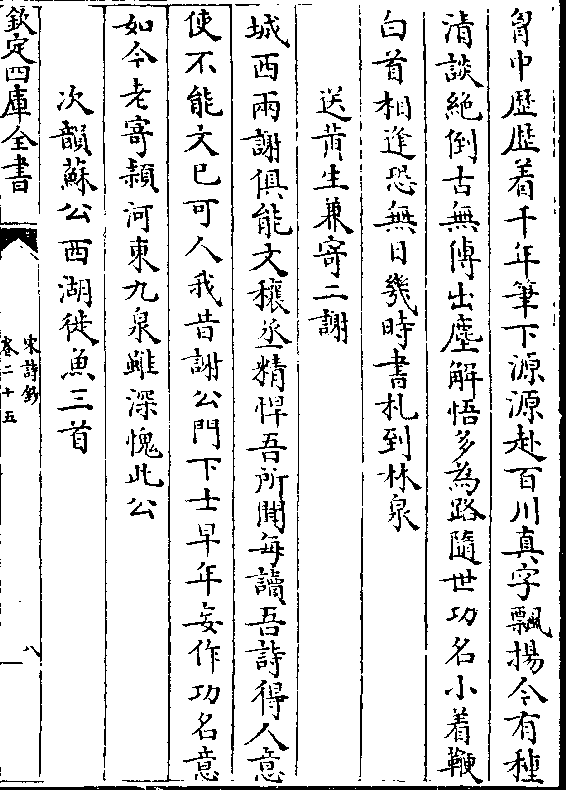 胷中歴歴着千年筆下源源赴百川真字飄揚今有種
清談絶倒古無傅出塵解悟多為路隨世功名小着鞭
白首相逢恐無日幾時書札到林泉
送黄生兼寄二謝
城西兩謝俱能文穰丞精悍吾所聞每讀吾詩得人意
使不能文已可人我昔謝公門下士早年妄作功名意
如今老寄潁河東九泉雖深愧此公
次韻蘇公西湖徙魚三首
欽定四庫全書
宋詩鈔
卷二十五
八